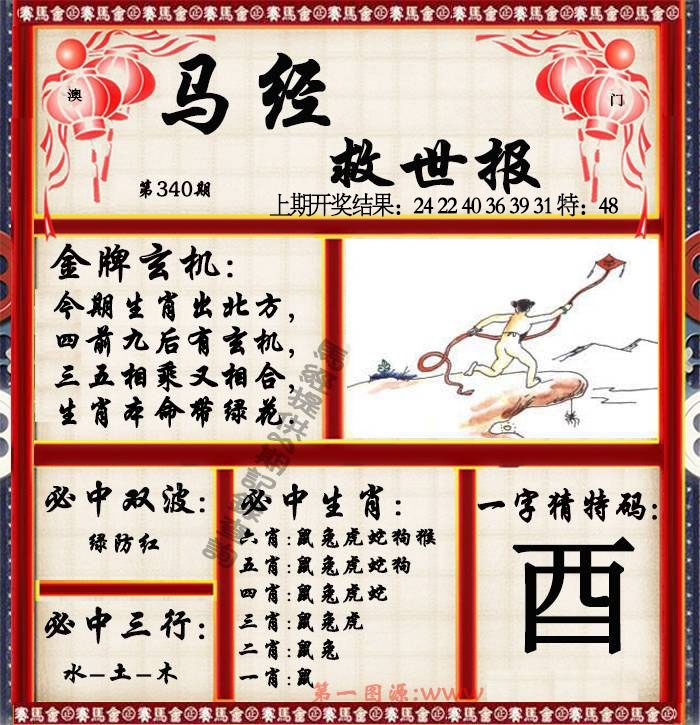 賽馬會賽馬會賽馬會賽馬會賽馬會賽馬會賽馬會
澳
门
马经
救世报
第340期
上期开奖结果：24 22 40 36 39 31 特：48
金牌玄机：
今期生肖出北方，
四前九后有玄机，
三五相乘又相合，
生肖本命带绿花．
必中双波：
绿防红
必中三行：
水–土–木
必中生肖：
六肖：鼠兔虎蛇狗猴
五肖：鼠兔虎蛇狗
四肖：鼠兔虎蛇
三肖：鼠兔虎
二肖：鼠兔
一肖：鼠
一字猜特码：
酉
第一图源：www